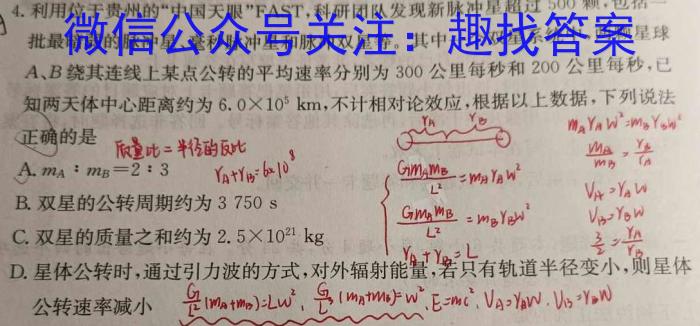 4. 利用位于贵州的“中国天眼”FAST,科研团队发现新脉冲星超过 500 颗,包括一
批最
微信公众号关注:趣找答案
A、B 绕其连线上某点公转的平均速率分别为 300 公里每秒和 200 公里每秒,已
知两天体中心距离约为 6.0×10⁵ km,不计相对论效应,根据以上数据,下列说法
正确的是
质量比=半径的反比
A. mA : mB=2 : 3
rA+rB=6×10⁸
B. 双星的公转周期约为 3 750 s
C. 双星的质量之和约为 2.5×10²¹ kg
D. 星体公转时,通过引力波的方式,对外辐射能量,若只有轨道半径变小,则星体
公转速率减小
rA rB
GmAmB/L² = mA rA w²
GmAmB/L² = mB rB w²
rA+rB=L
mA rA w²=mB rB w²
mA/mB = rB/rA
VA=rA w
VB=rB w
3/2 = rA/rB
G/L² (mA+mB)=Lw², G/L³ (mA+mB)=w², E=mc², VA=rAw, VB=rBw